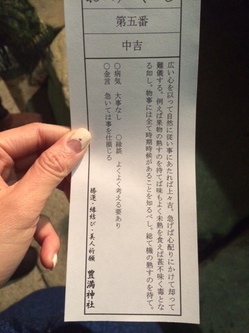 おみくじ
第五番
中吉
広い心を以って自然に従い事にあたれば上々吉、急げば心配りにかけて却って
難儀する。例えば果物の熟すのを待てば味もよく未熟を食えば甚不味く毒とな
る如し。物事には全て時期時候があることを知るべし。総て機の熟すのを待て。
○病気　大事なし　○縁談　よくよく考える要あり
○金言　急いては事を仕損じる
勝運・縁結び・美人祈願　豊満神社